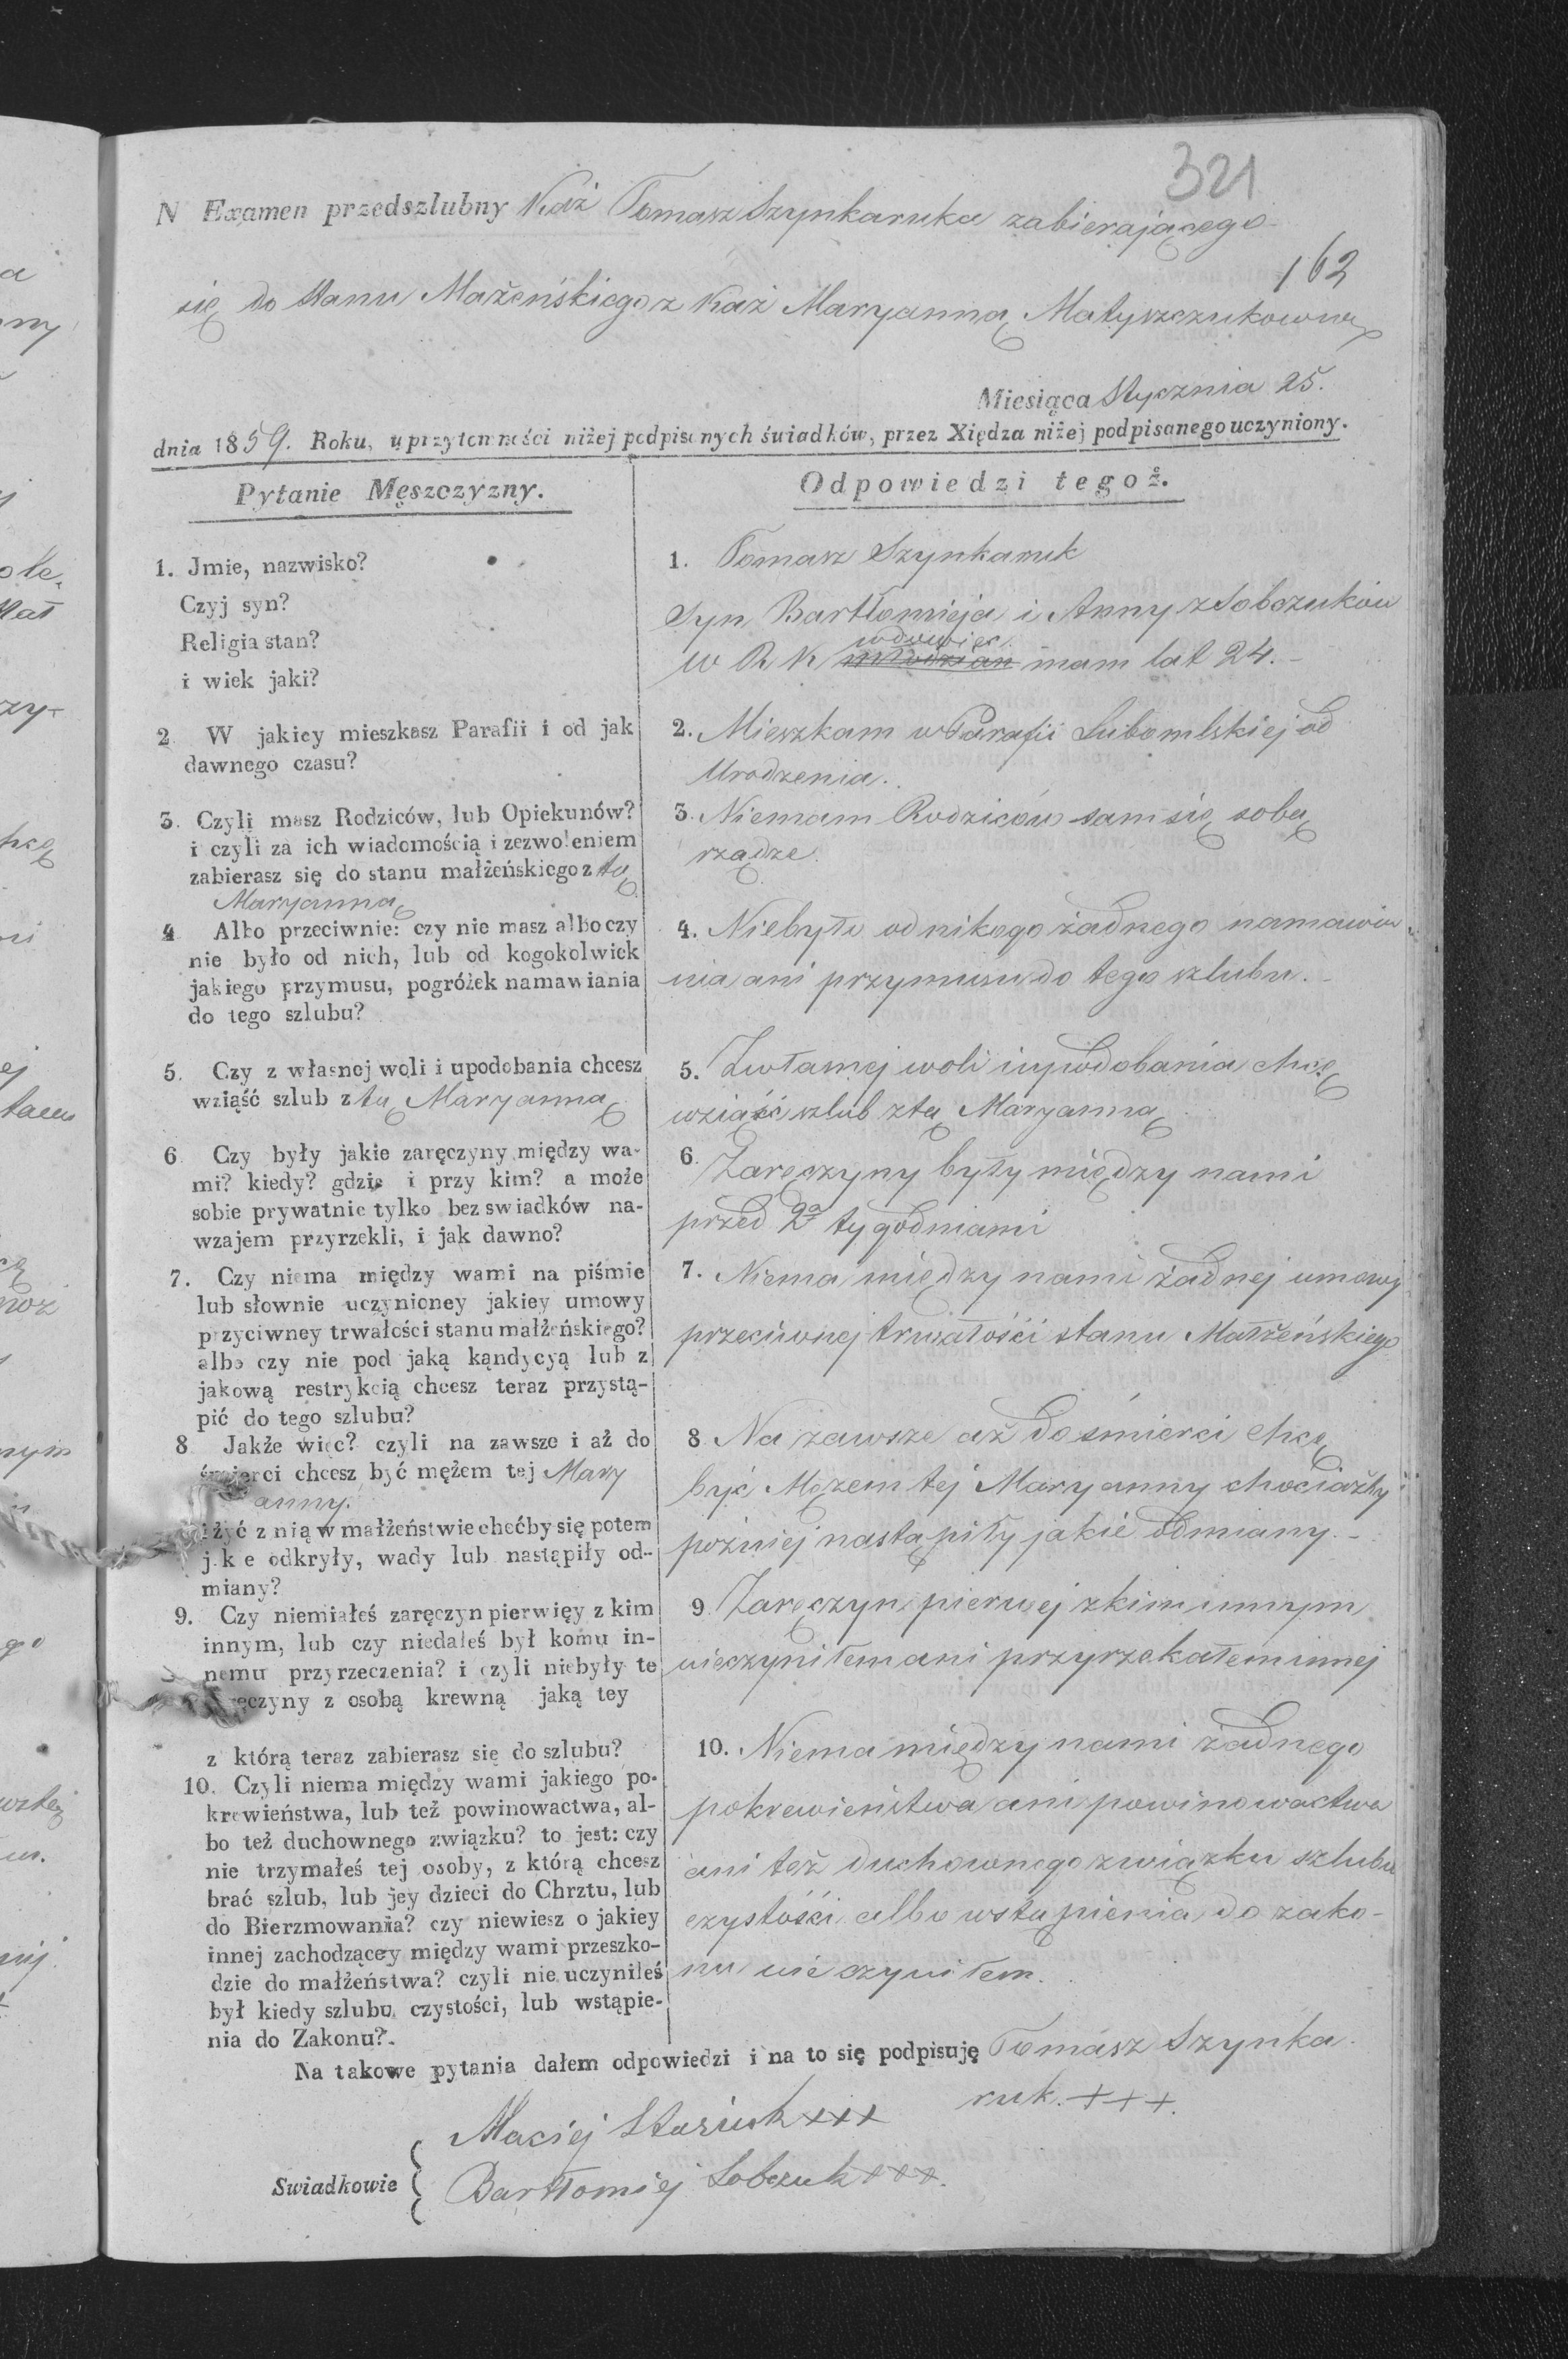 321
N Examen przedszlubny Każ Tomasz Szynkaruka zabierającego
162
się do stanu Mażeńskiego z Każ Maryanną Matyszczukowną
Miesiąca Stycznia 25.
dnia 1859. Roku, w przytomności niżej podpisanych świadków, przez Xiędza niżej podpisanego uczyniony.
Pytanie Męszczyzny.
1. Jmie, nazwisko?
Czyj syn?
Religia stan?
i wiek jaki?
2 W jakiey mieszkasz Parafii i od jak
dawnego czasu?
3. Czyli masz Rodziców, lub Opiekunów?
i czyli za ich wiadomością i zezwoleniem
zabierasz się do stanu małżeńskiego z tą
Maryanną
4 Albo przeciwnie: czy nie masz albo czy
nie było od nich, lub od kogokolwiek
jakiego przymusu, pogróżek namawiania
do tego szlubu?
5. Czy z własnej woli i upodobania chcesz
wziąść szlub z tą Maryanną
6 Czy były jakie zaręczyny między wa-
mi? kiedy? gdzie i przy kim? a może
sobie prywatnie tylko bez swiadków na-
wzajem przyrzekli, i jak dawno?
7. Czy niema między wami na piśmie
lub słownie uczynioney jakiey umowy
przyciwney trwałości stanu małżeńskiego?
albo czy nie pod jaką kąndycyą lub z
jakową restrykcią chcesz teraz przystą-
pić do tego szlubu?
8 Jakże więc? czyli na zawsze i aż do
śmierci chcesz być mężem tej Mary
anny.
i żyć z nią w małżeństwie choćby się potem
jake odkryły, wady lub nastąpiły od-
miany?
9. Czy niemiałeś zaręczyn pierwięy z kim
innym, lub czy niedałeś był komu in-
nemu przyrzeczenia? i czyli niebyły te
zaręczyny z osobą krewną jaką tey
z którą teraz zabierasz się do szlubu?
10. Czyli niema między wami jakiego po-
krewieństwa, lub też powinowactwa, al-
bo też duchownego związku? to jest: czy
nie trzymałeś tej osoby, z którą chcesz
brać szlub, lub jey dzieci do Chrztu, lub
do Bierzmowania? czy niewiesz o jakiey
innej zachodzącey między wami przeszko-
dzie do małżeństwa? czyli nie uczyniłeś
był kiedy szlubu czystości, lub wstąpie-
nia do Zakonu?
Odpowiedzi tegoż.
1. Tomasz Szynkaruk
Syn Bartłomieja i Anny z Sobczuków
wdowiec
w R K młodzian mam lat 24.
2. Mieszkam w Parafii Lubomlskiej od
Urodzenia.
3. Niemam Rodziców sam się sobą
rządze.
4. Niebyło od nikogo żadnego namawia
nia ani przymusu do tego szlubu.
5. Zwłasnej woli i upodobania chcę
wziąść szlub z tą Maryanną
6. Zaręczyny były między nami
przed 2a tygodniami
7. Niema między nami żadnej umowy
przeciwnej trwałości stanu Małżeńskiego
8 Na zawsze aż do śmierci chcę
być Mężem tej Maryanny chociażby
pożniej nastąpiły jakie odmiany.
9 Zaręczyn pierwej z kim innym
nieczyniłem ani przyrzekałem innej
10. Niema między nami żadnego
pokrewieństwa ani powinowactwa
ani też duchownego związku szlubu
czystości albo wstąpienia do zako-
nu nie czyniłem.
Na takowe pytania dałem odpowiedzi i na to się podpisuję Tomász Szynka
ruk. +++.
Swiadkowie
Maciej Stasiuk xxx
Bartłomiej Sobczuk xxx.